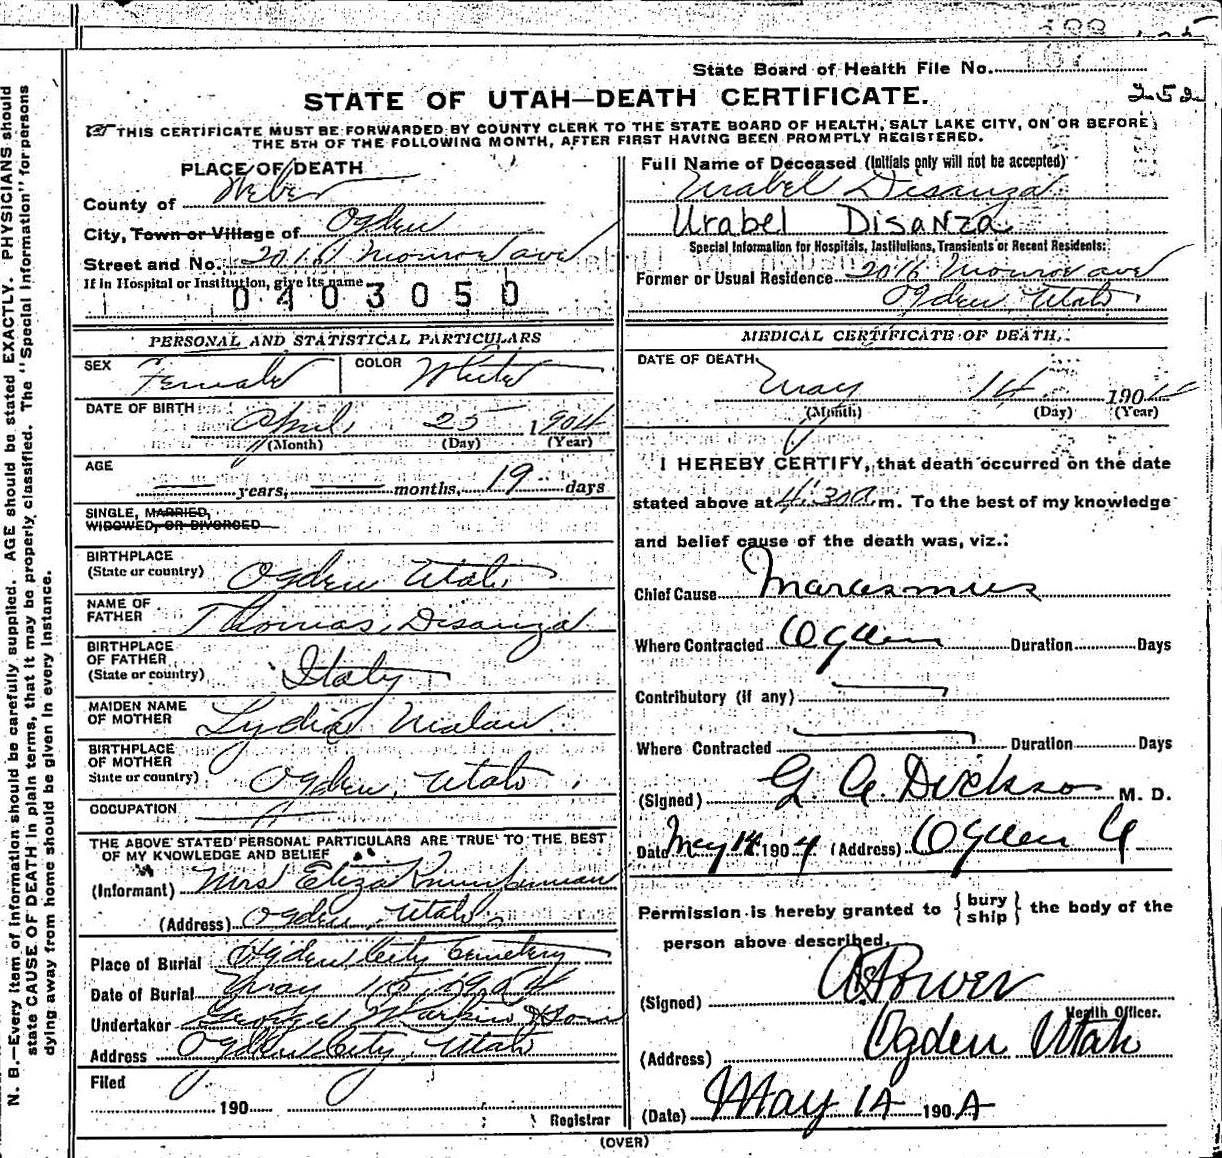 State Board of Health File No.
STATE OF UTAH—DEATH CERTIFICATE.
252
THIS CERTIFICATE MUST BE FORWARDED BY COUNTY CLERK TO THE STATE BOARD OF HEALTH, SALT LAKE CITY, ON OR BEFORE
THE 5TH OF THE FOLLOWING MONTH, AFTER FIRST HAVING BEEN PROMPTLY REGISTERED.
PLACE OF DEATH
County of Weber
City, Town or Village of Ogden
Street and No. 2016 Monroe ave
If in Hospital or Institution, give its name
0403050
PERSONAL AND STATISTICAL PARTICULARS
SEX Female COLOR White
DATE OF BIRTH
April 25 1904
(Month) (Day) (Year)
AGE
years, months, 19 days
SINGLE, MARRIED,
WIDOWED, OR DIVORCED
BIRTHPLACE
(State or country) Ogden Utah
NAME OF
FATHER Thomas Disanza
BIRTHPLACE
OF FATHER
(State or country) Italy
MAIDEN NAME
OF MOTHER Lydia
BIRTHPLACE
OF MOTHER
State or country) Ogden, Utah
OCCUPATION
THE ABOVE STATED PERSONAL PARTICULARS ARE TRUE TO THE BEST
OF MY KNOWLEDGE AND BELIEF
(Informant) Mrs Eliza
(Address) Ogden, Utah
Place of Burial Ogden City Cemetery
Date of Burial May 15, 1904
Undertaker George Larkin & Son
Address Ogden City, Utah
Filed
190
Registrar
Full Name of Deceased (Initials only will not be accepted)
Urabel Disanza
Urabel Disanza
Special Information for Hospitals, Institutions, Transients or Recent Residents:
Former or Usual Residence 2016 Monroe ave
Ogden, Utah
MEDICAL CERTIFICATE OF DEATH.
DATE OF DEATH
May 14 1904
(Month) (Day) (Year)
I HEREBY CERTIFY, that death occurred on the date
stated above at 4:30 a m. To the best of my knowledge
and belief cause of the death was, viz.:
Chief Cause Marasmus
Where Contracted Ogden Duration Days
Contributory (if any)
Where Contracted Duration Days
(Signed) G. A. Dickson M. D.
Date May 14 1904 (Address) Ogden U
Permission is hereby granted to { bury
ship } the body of the
person above described.
(Signed) Power
Health Officer.
(Address) Ogden Utah
(Date) May 14 1904
(OVER)
N. B.—Every item of information should be carefully supplied. AGE should be stated EXACTLY. PHYSICIANS should
state CAUSE OF DEATH in plain terms, that it may be properly classified. The "Special Information" for persons
dying away from home should be given in every instance.